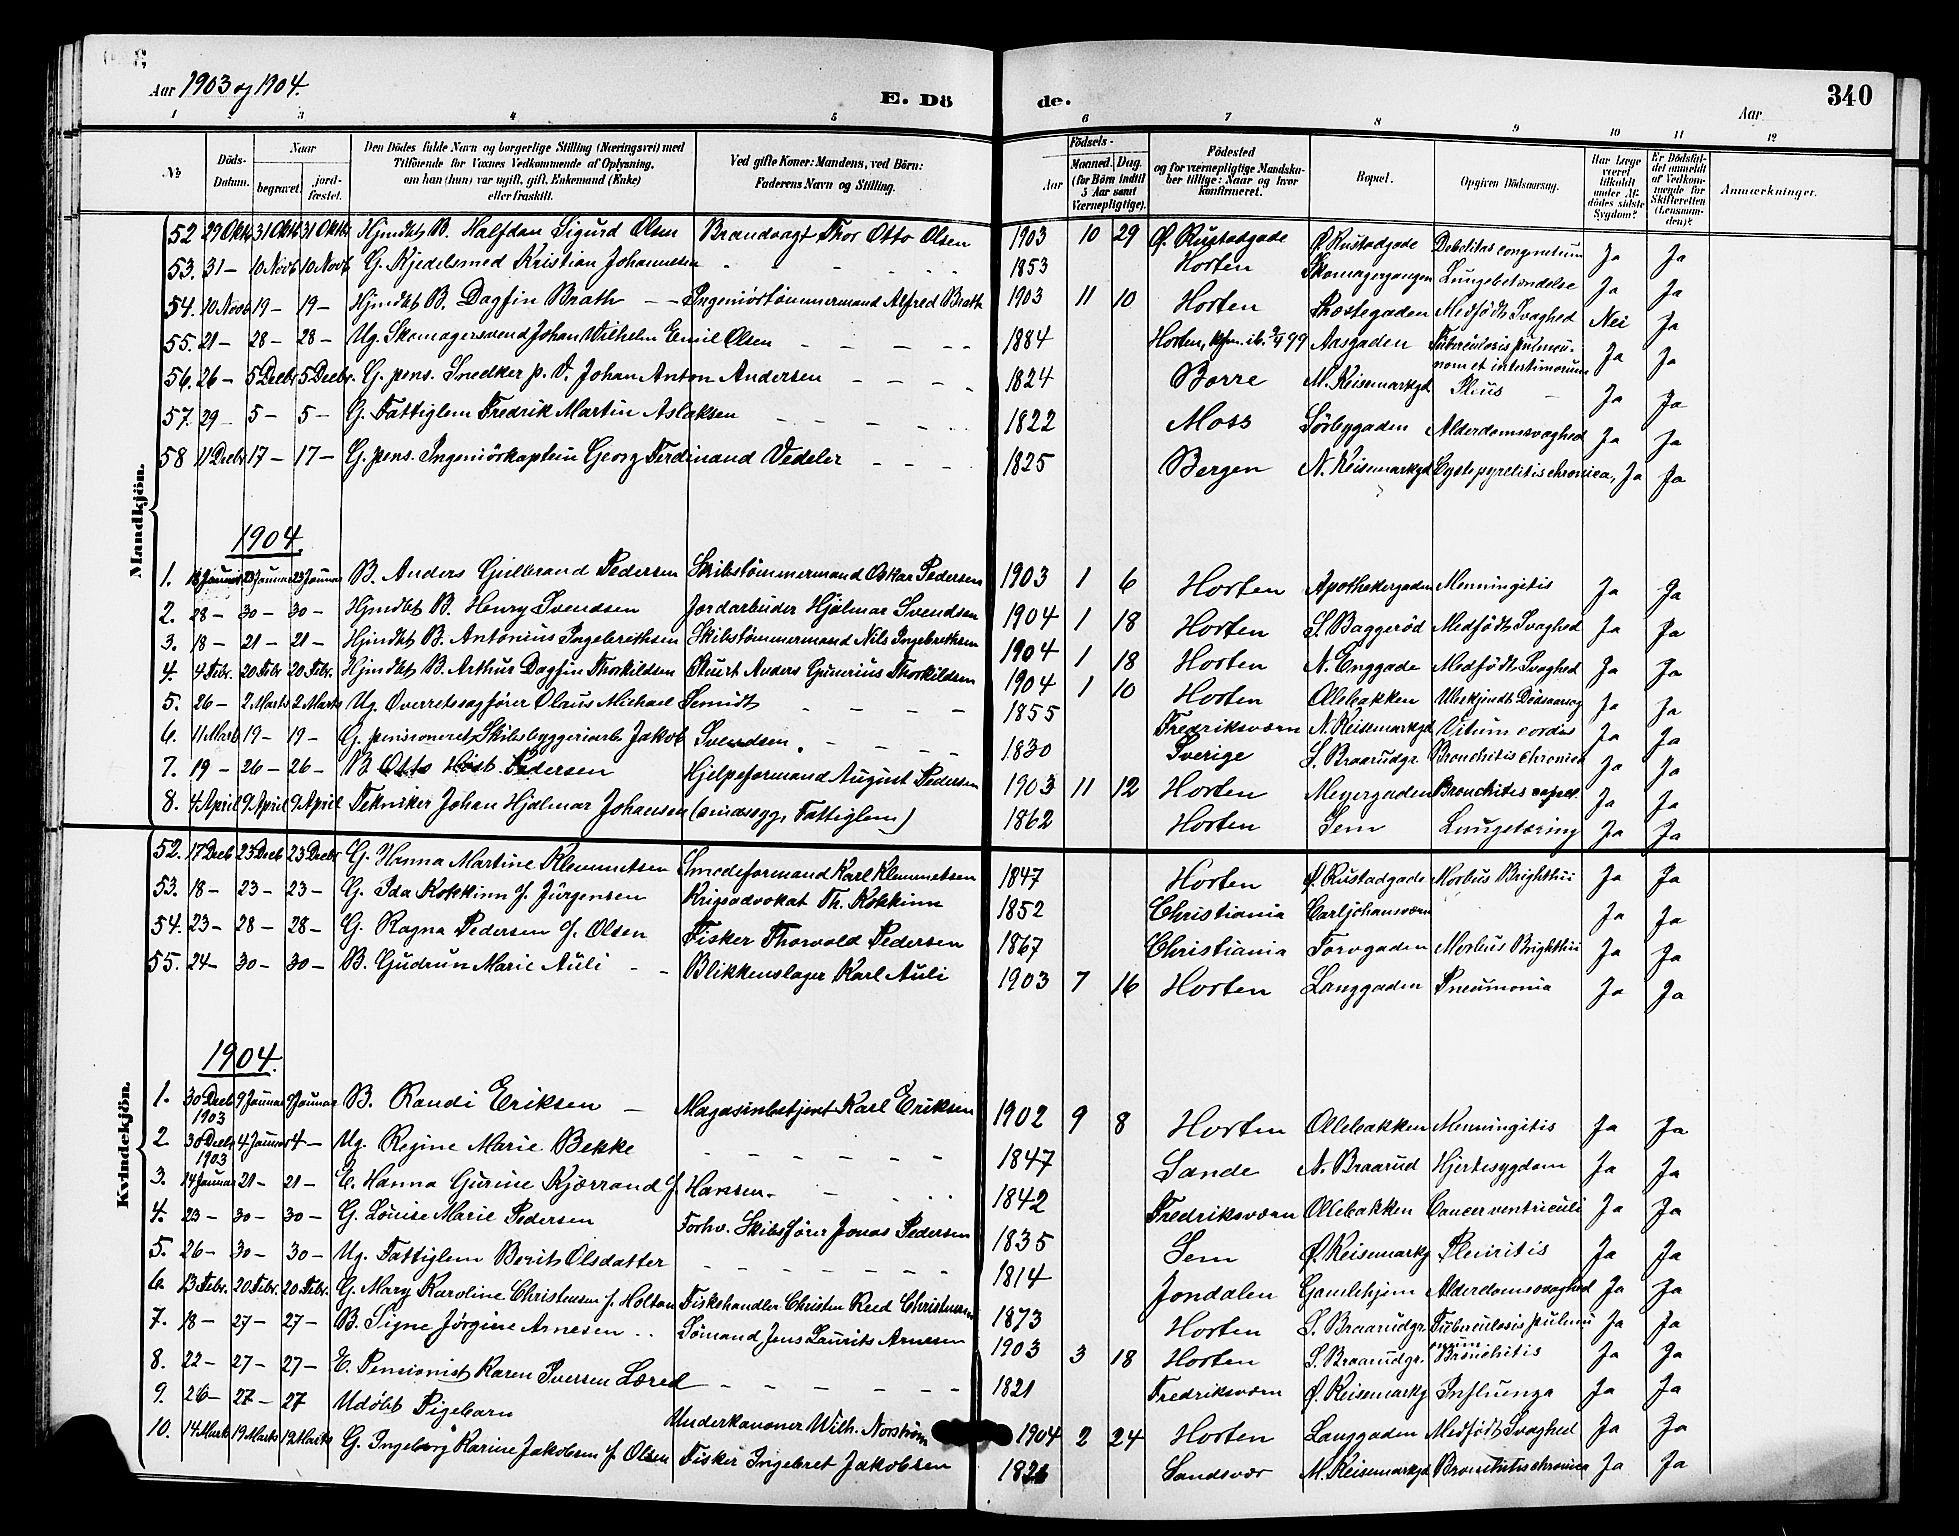 Aar 1903 og 1904.
E. Dö
de.
Aar
340
1 2 3 4 5 6 7 8 9 10 11 12
№
Döds-Datum.
Naar
begravet.
jord-fæstet.
Den Dödes fulde Navn og borgerlige Stilling (Næringsvei) med
Tilföiende for Voxnes Vedkommende af Oplysning,
om han (hun) var ugift, gift, Enkemand (Enke)
eller fraskilt.
Ved gifte Koner: Mandens, ved Börn:
Faderens Navn og Stilling.
Födsels-
Aar
Maaned. Dag.
(for Börn indtil
5 Aar samt
Værnepligtige).
Födested
og for værnepligtige Mandska-
ber tillige: Naar og hvor
konfirmeret.
Bopæl.
Opgiven Dödsaarsag.
Har Læge
været
tilkaldt
under Af-
dödes sidste
Sygdom?
Er Dödsfal-
det anmeldt
af Vedkom-
mende for
Skifteretten
(Lensman-
den)?
Anmærkninger.
Mandkjön.
52 29 Oktb 31 Oktb 31 Oktb Hjmdbt B. Halfdan Sigurd Olsen Brandvagt Thor Otto Olsen 1903 10 29 Ø. Rustadgade Ø. Rustadgade Debilitas congenitum Ja Ja
53. 31 – 10 Novb 10 Novb G. Kjedelsmed Kristian Johannesen 1853 Horten Skomagergangen Lungebetændelse Ja Ja
54. 10 Novb 19 – 19 – Hjmdbt B. Dagfin Brath – – Ingeniørtømmermand Alfred Brath 1903 11 10 Horten Præstegaden Medfødt Svaghed Nei Ja
55. 21 – 28 – 28 – Ug. Skomagersvend Johan Wilhelm Emil Olsen 1884 Horten, kfm. ib. 99 Aasgaden Tuberculosis pulmo-
num et intestinorum Ja Ja
56. 26 – 5 Decbr 5 Decbr. G. pens. Snedker p. V. Johan Anton Andersen 1824 Borre M. Keisemarkgd Ja Ja
57. 29 – 5 – 5 – G. Fattiglem Fredrik Martin Aslaksen 1822 Moss Sørbygaden Alderdomssvaghed Ja Ja
58 11 Decbr 17 – 17 – G. pens. Ingeniørkaptein Georg Ferdinand Vedeler 1825 Bergen N. Keisemarkgd Cystopyelitis chronica, Ja Ja
1904.
1. 18 Januar 23 Januar 23 Januar B. Anders Gulbrand Pedersen Skibstømmermand Oskar Pedersen 1903 1 6 Horten Apothekergaden Menningitis Ja Ja
2. 28 – 30 – 30 – Hjmdbt B. Henry Svendsen Jordarbeider Hjalmar Svendsen 1904 1 18 Horten S. Baggerød Medfødt Svaghed Ja Ja
3. 18 – 21 – 21 – Hjmdbt B. Antonius Ingebrethsen Skibstømmermand Nils Ingebrethsen 1904 1 18 Horten N. Enggade Medfødt Svaghed Ja Ja
4. 4 Febr. 20 Febr 20 Febr. Hjmdbt B. Arthur Dagfin Thorkildsen Stuert Anders Gunerius Thorkildsen 1904 1 10 Horten Ollebakken Ubekjendt Dødsaarsag Ja Ja
5. 26 – 2 Marts 2 Marts Ug. Overretssagfører Olaus Michael Semidt 1855 Fredriksværn N. Keisemarkgd Vitium cordis Ja Ja
6. 11 Mart 19 – 19 – G. pensioneret Skibsbyggeriarb. Jakob Svendsen. 1830 Sverige S. Braarudgr. Bronchitis chronica Ja Ja
7. 19 – 26 – 26 – B. Otto Høst Pedersen Hjelpeformand August Pedersen 1903 11 12 Horten Meyergaden Bronchitis capil. Ja Ja
8. 4 April 9 April 9 April Tekniker Johan Hjalmar Johansen (sindssyg, Fattiglem) 1862 Horten Sem Lungetæring Ja Ja
Kvindekjön.
52. 17 Decb 23 Decb 23 Decbr G. Hanna Martine Klemmetsen Smedeformand Karl Klemmetsen 1847 Horten Ø. Rustadgade Morbus Brightii Ja Ja
53. 18 – 23 – 23 – G. Ida Kokkinn f. Jürgensen Krigsadvokat Th. Kokkinn 1852 Christiania Carljohansværn Ja Ja
54. 23 – 28 – 28 – G. Ragna Pedersen f. Olsen Fisker Thorvald Pedersen 1867 Christiania Torvgaden Morbus Brightii Ja Ja
55. 24 – 30 – 30 – B. Gudrun Marie Auli – – Blikkenslager Karl Auli 1903 7 16 Horten Langgaden Pneumonia Ja Ja
1904.
1. 30 Decb 1903 9 Januar 9 Januar B. Randi Eriksen – Magasinbetjent Karl Eriksen 1902 9 8 Horten Ollebakken Menningitis Ja Ja
2. 30 Decb 1903 4 Januar 4 – Ug. Regine Marie Bekke 1847 Sande N. Braarud Hjertesygdom Ja Ja
3. 14 Januar 21 – 21 – E. Hanna Gurine Kjærrand f. Hansen. 1842 Fredriksværn Ollebakken Cancer ventriculi Ja Ja
4. 23 – 30 – 30 – G. Louise Marie Pedersen Forhv. Skibsfører Jonas Pedersen 1835 Sem Ø. Keisemarkg Pleuritis Ja Ja
5. 26 – 30 – 30 – Ug. Fattiglem Berit Olsdatter 1814 Jondalen Gamlehjem Alderdomssvaghed Ja Ja
6. 13 Febr. 20 Febr. 20 Febr. G. Mary Karoline Christensen f. Holtan Fiskehandler Christen Reed Christensen 1873 Horten S. Braarudgr. Tuberculosis pulmonum Ja Ja
7. 18 – 27 – 27 – B. Signe Jørgine Arnesen .. Sømand Jens Laurits Arnesen 1903 3 18 Horten S. Braarudgr. Bronchitis Ja Ja
8. 22 – 27 – 27 – E. Pensionist Karen Iversen Læred 1821 Fredriksværn Ø. Keisemarkg Influenza Ja Ja
9. 26 – 27 – 27 Udøbt Pigebarn Underkanoner Wilh. Norstrøm 1904 2 24 Horten Langgaden Medfødt Svaghed Ja Ja
10. 14 Marts 19 Marts 19 Marts G. Ingeborg Karine Jakobsen f. Olsen Fisker Ingebret Jakobsen Sandsvær M. Keisemarkgd Bronchitis chronica Ja Ja